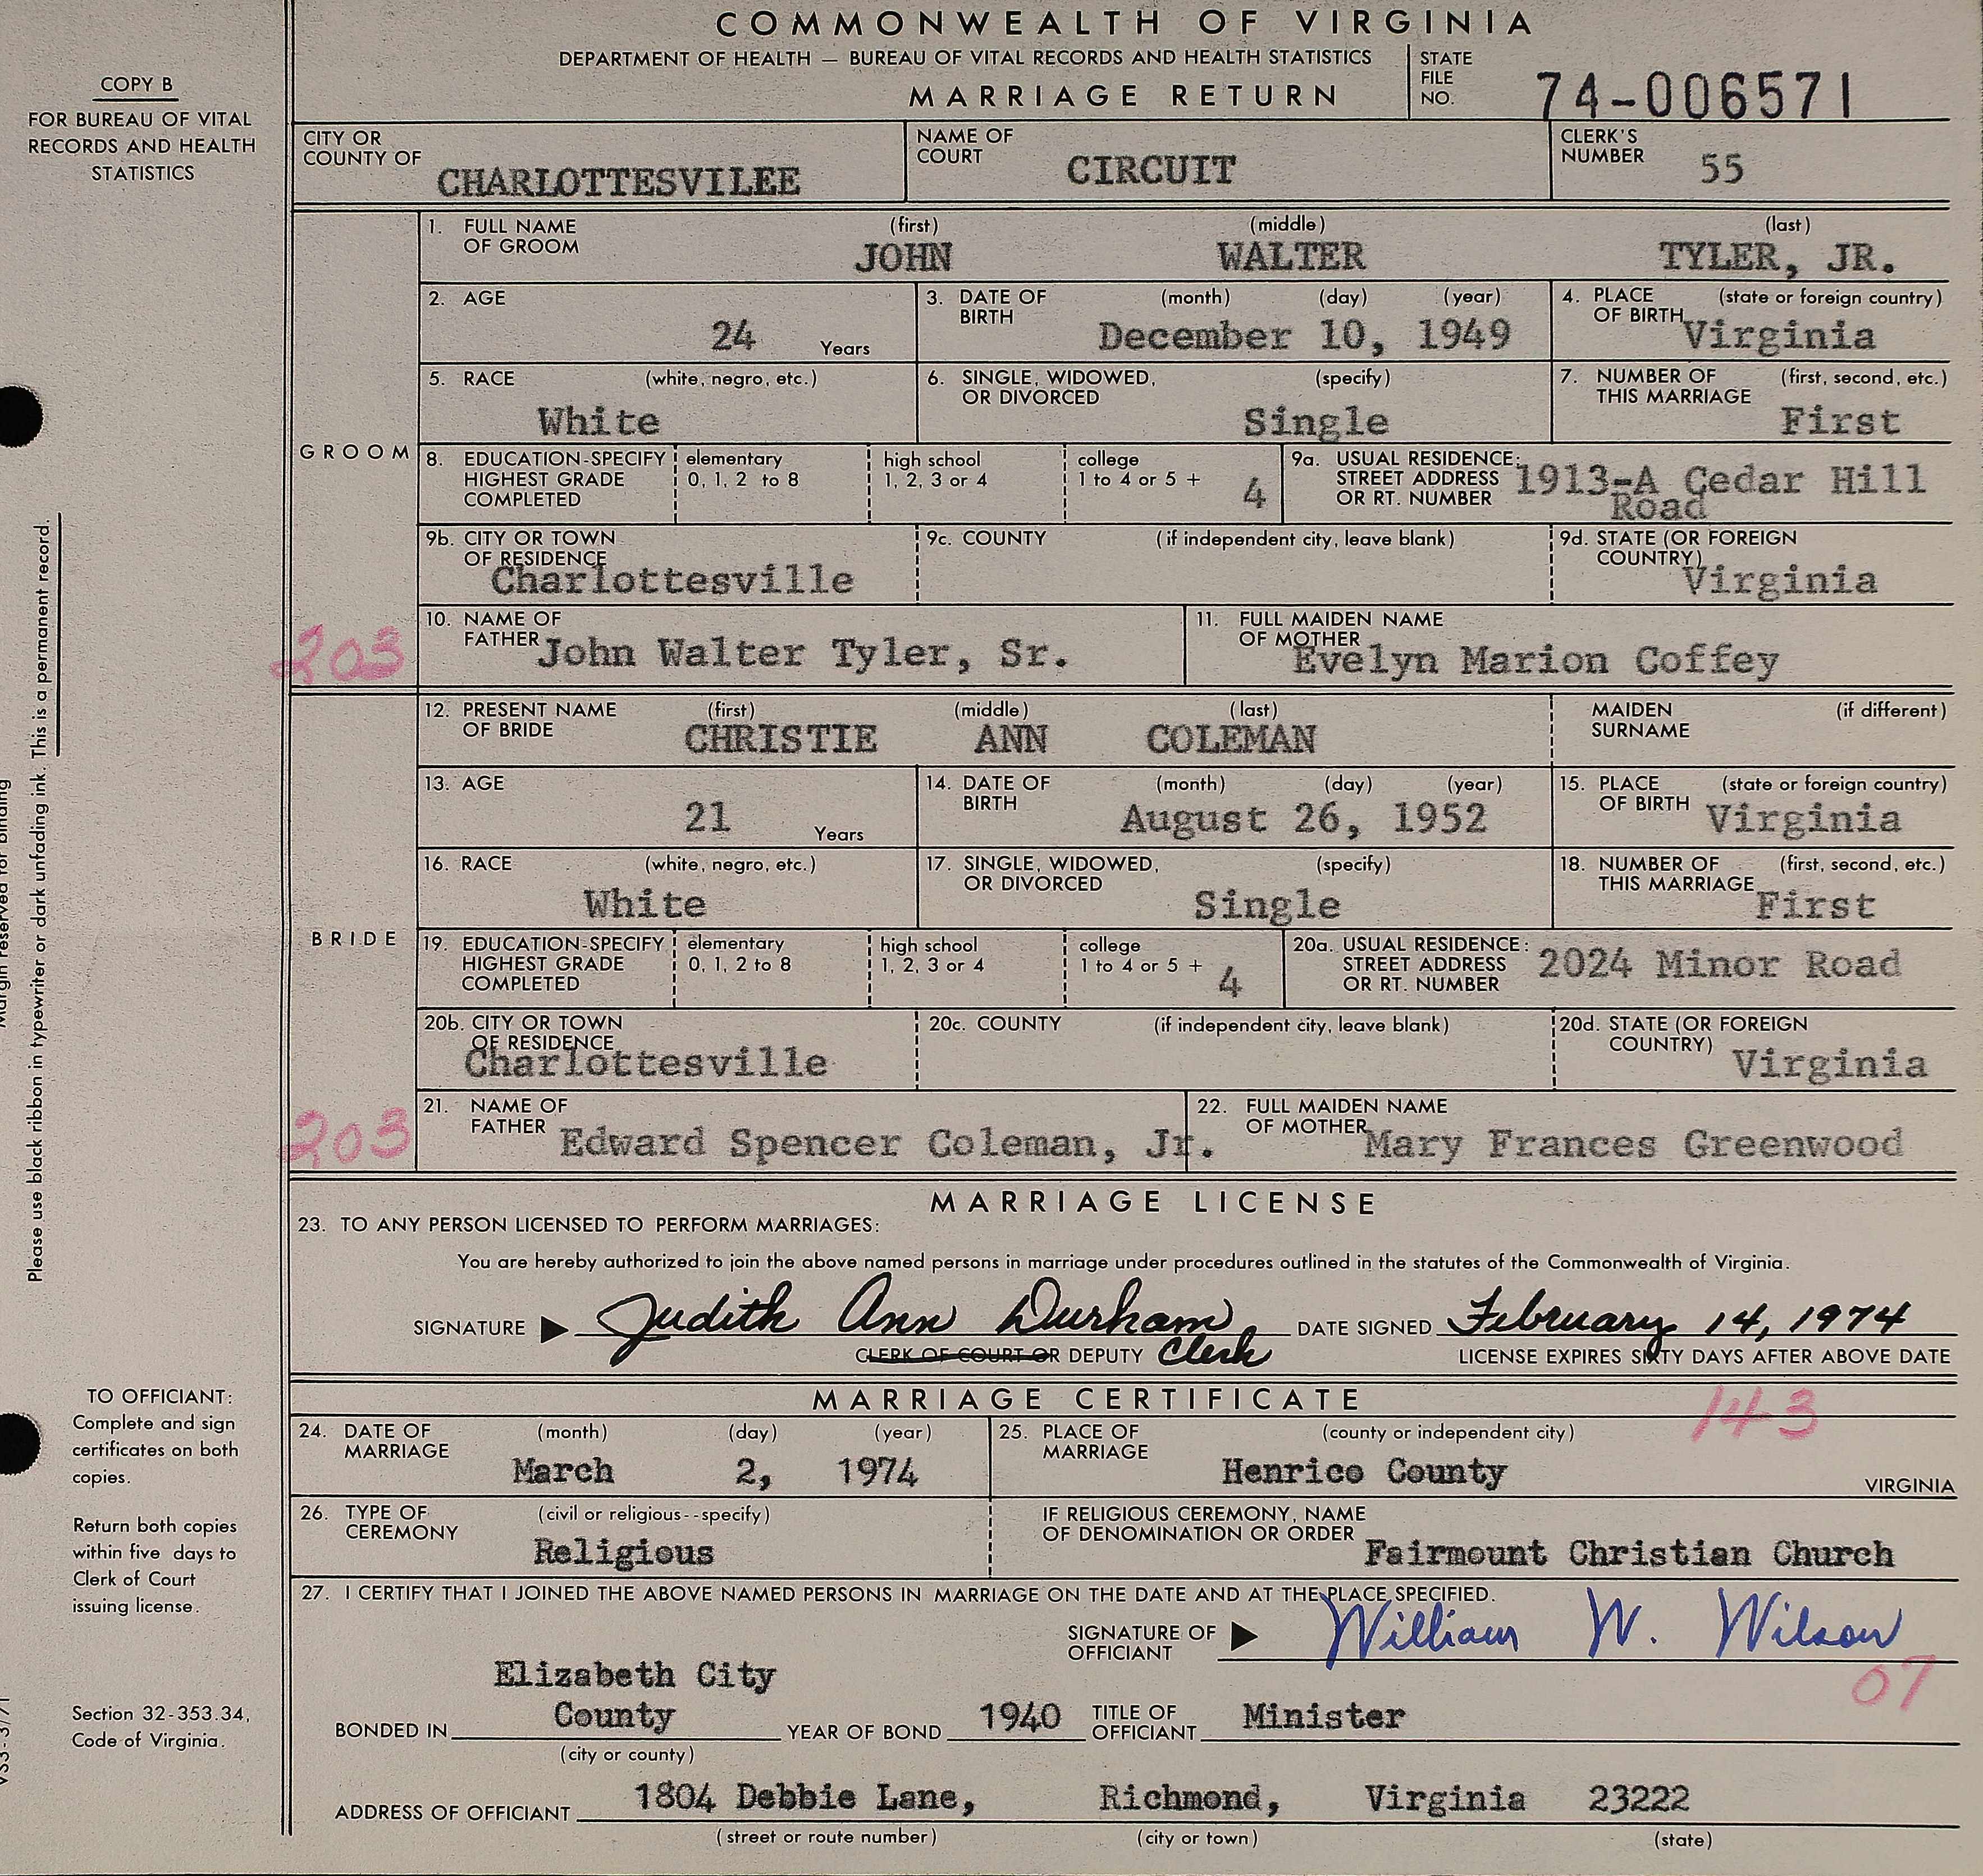 COMMONWEALTH OF VIRGINIA
DEPARTMENT OF HEALTH — BUREAU OF VITAL RECORDS AND HEALTH STATISTICS
MARRIAGE RETURN
STATE FILE NO. 74-006571
COPY B
FOR BUREAU OF VITAL
RECORDS AND HEALTH
STATISTICS
CITY OR COUNTY OF CHARLOTTESVILEE
NAME OF COURT CIRCUIT
CLERK'S NUMBER 55
GROOM
1. FULL NAME OF GROOM (first) JOHN (middle) WALTER (last) TYLER, JR.
2. AGE 24 Years
3. DATE OF BIRTH (month) (day) (year) December 10, 1949
4. PLACE OF BIRTH (state or foreign country) Virginia
5. RACE (white, negro, etc.) White
6. SINGLE, WIDOWED, OR DIVORCED (specify) Single
7. NUMBER OF THIS MARRIAGE (first, second, etc.) First
8. EDUCATION-SPECIFY HIGHEST GRADE COMPLETED elementary 0, 1, 2 to 8 high school 1, 2, 3 or 4 college 1 to 4 or 5 + 4
9a. USUAL RESIDENCE: STREET ADDRESS OR RT. NUMBER 1913-A Cedar Hill Road
9b. CITY OR TOWN OF RESIDENCE Charlottesville
9c. COUNTY (if independent city, leave blank)
9d. STATE (OR FOREIGN COUNTRY) Virginia
10. NAME OF FATHER John Walter Tyler, Sr.
11. FULL MAIDEN NAME OF MOTHER Evelyn Marion Coffey
203
BRIDE
12. PRESENT NAME OF BRIDE (first) CHRISTIE (middle) ANN (last) COLEMAN
MAIDEN SURNAME (if different)
13. AGE 21 Years
14. DATE OF BIRTH (month) (day) (year) August 26, 1952
15. PLACE OF BIRTH (state or foreign country) Virginia
16. RACE (white, negro, etc.) White
17. SINGLE, WIDOWED, OR DIVORCED (specify) Single
18. NUMBER OF THIS MARRIAGE (first, second, etc.) First
19. EDUCATION-SPECIFY HIGHEST GRADE COMPLETED elementary 0, 1, 2 to 8 high school 1, 2, 3 or 4 college 1 to 4 or 5 + 4
20a. USUAL RESIDENCE: STREET ADDRESS OR RT. NUMBER 2024 Minor Road
20b. CITY OR TOWN OF RESIDENCE Charlottesville
20c. COUNTY (if independent city, leave blank)
20d. STATE (OR FOREIGN COUNTRY) Virginia
21. NAME OF FATHER Edward Spencer Coleman, Jr.
22. FULL MAIDEN NAME OF MOTHER Mary Frances Greenwood
203
MARRIAGE LICENSE
23. TO ANY PERSON LICENSED TO PERFORM MARRIAGES:
You are hereby authorized to join the above named persons in marriage under procedures outlined in the statutes of the Commonwealth of Virginia.
SIGNATURE ▶ Judith Ann Durham DATE SIGNED February 14, 1974
CLERK OF COURT OR DEPUTY Clerk
LICENSE EXPIRES SIXTY DAYS AFTER ABOVE DATE
MARRIAGE CERTIFICATE
143
24. DATE OF MARRIAGE (month) (day) (year) March 2, 1974
25. PLACE OF MARRIAGE (county or independent city) Henrico County VIRGINIA
26. TYPE OF CEREMONY (civil or religious--specify) Religious
IF RELIGIOUS CEREMONY, NAME OF DENOMINATION OR ORDER Fairmount Christian Church
27. I CERTIFY THAT I JOINED THE ABOVE NAMED PERSONS IN MARRIAGE ON THE DATE AND AT THE PLACE SPECIFIED.
SIGNATURE OF OFFICIANT ▶ William W. Wilson
07
BONDED IN Elizabeth City County (city or county) YEAR OF BOND 1940 TITLE OF OFFICIANT Minister
ADDRESS OF OFFICIANT 1804 Debbie Lane, Richmond, Virginia 23222
(street or route number) (city or town) (state)
Please use black ribbon in typewriter or dark unfading ink. This is a permanent record.
Margin reserved for binding
TO OFFICIANT:
Complete and sign
certificates on both
copies.
Return both copies
within five days to
Clerk of Court
issuing license.
Section 32-353.34,
Code of Virginia.